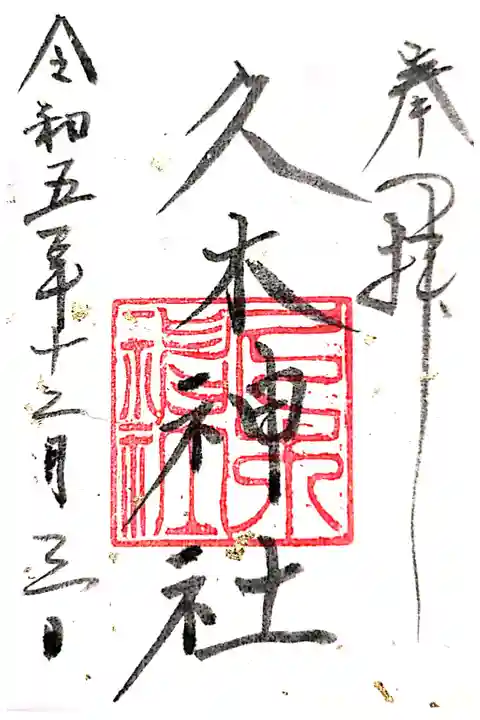 奉拝
久木神社
令和五年十二月三日